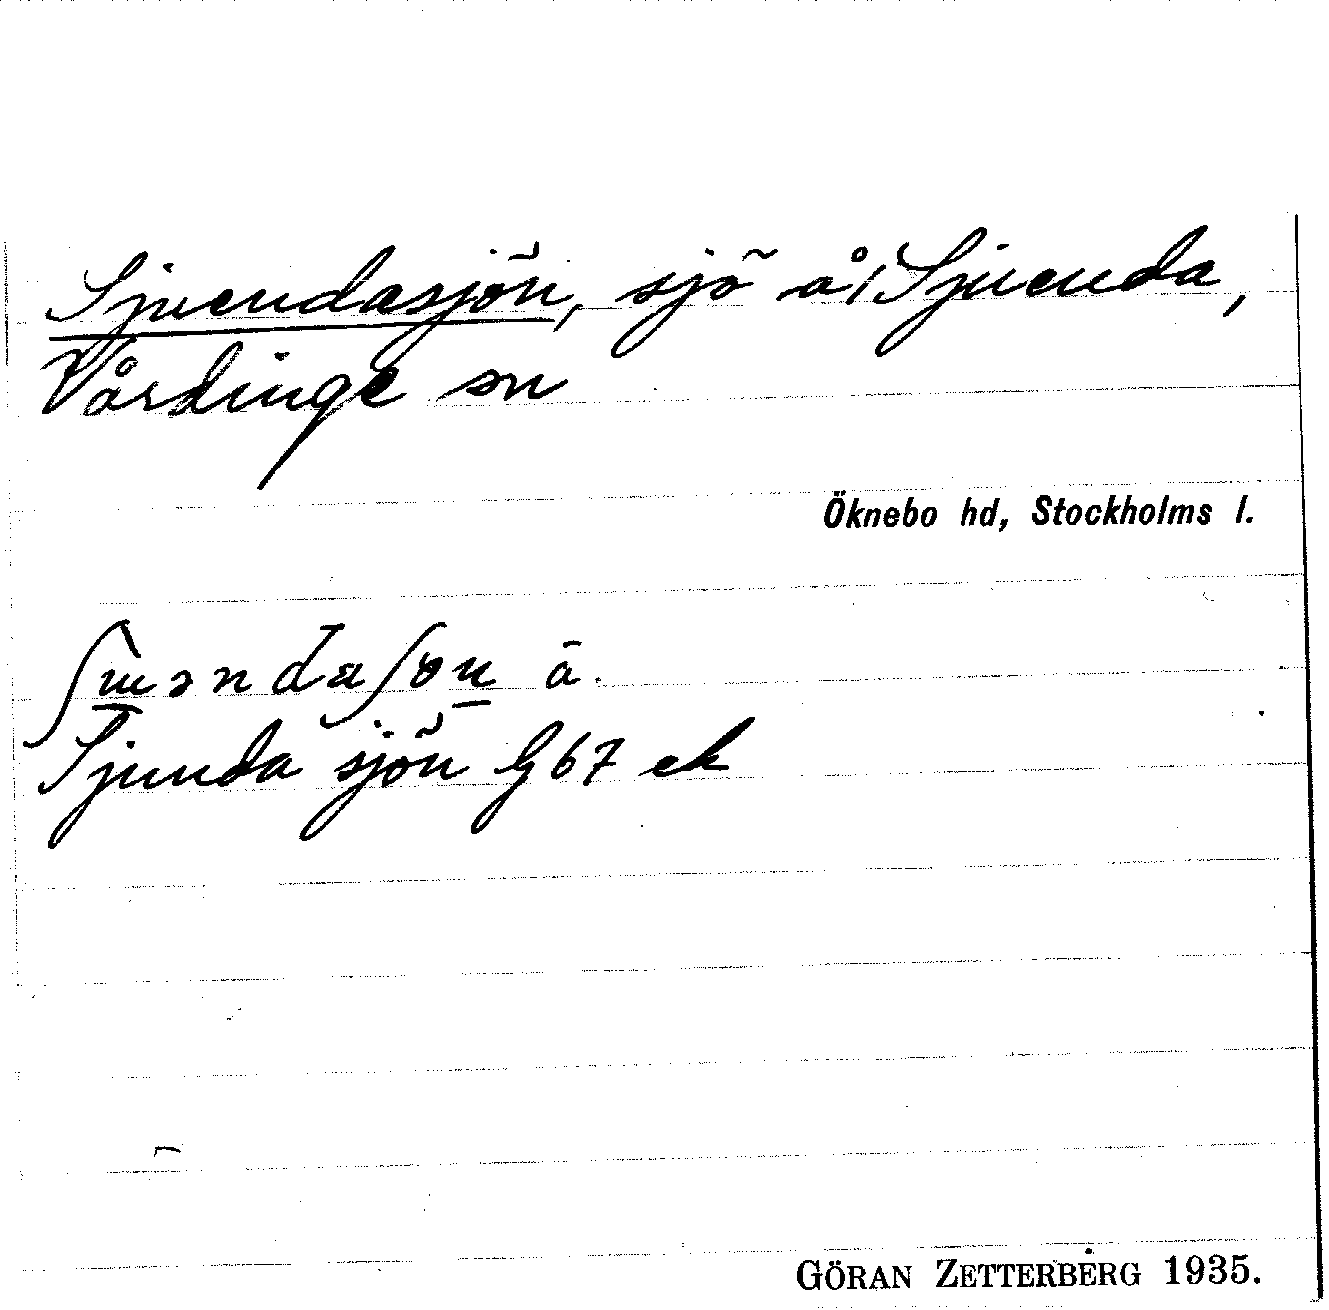 Sjuendasjön, sjö å Sjuenda,
Vårdinge sn
Öknebo hd, Stockholms l.
Sjunda sjön G 67 ek
GÖRAN ZETTERBERG 1935.